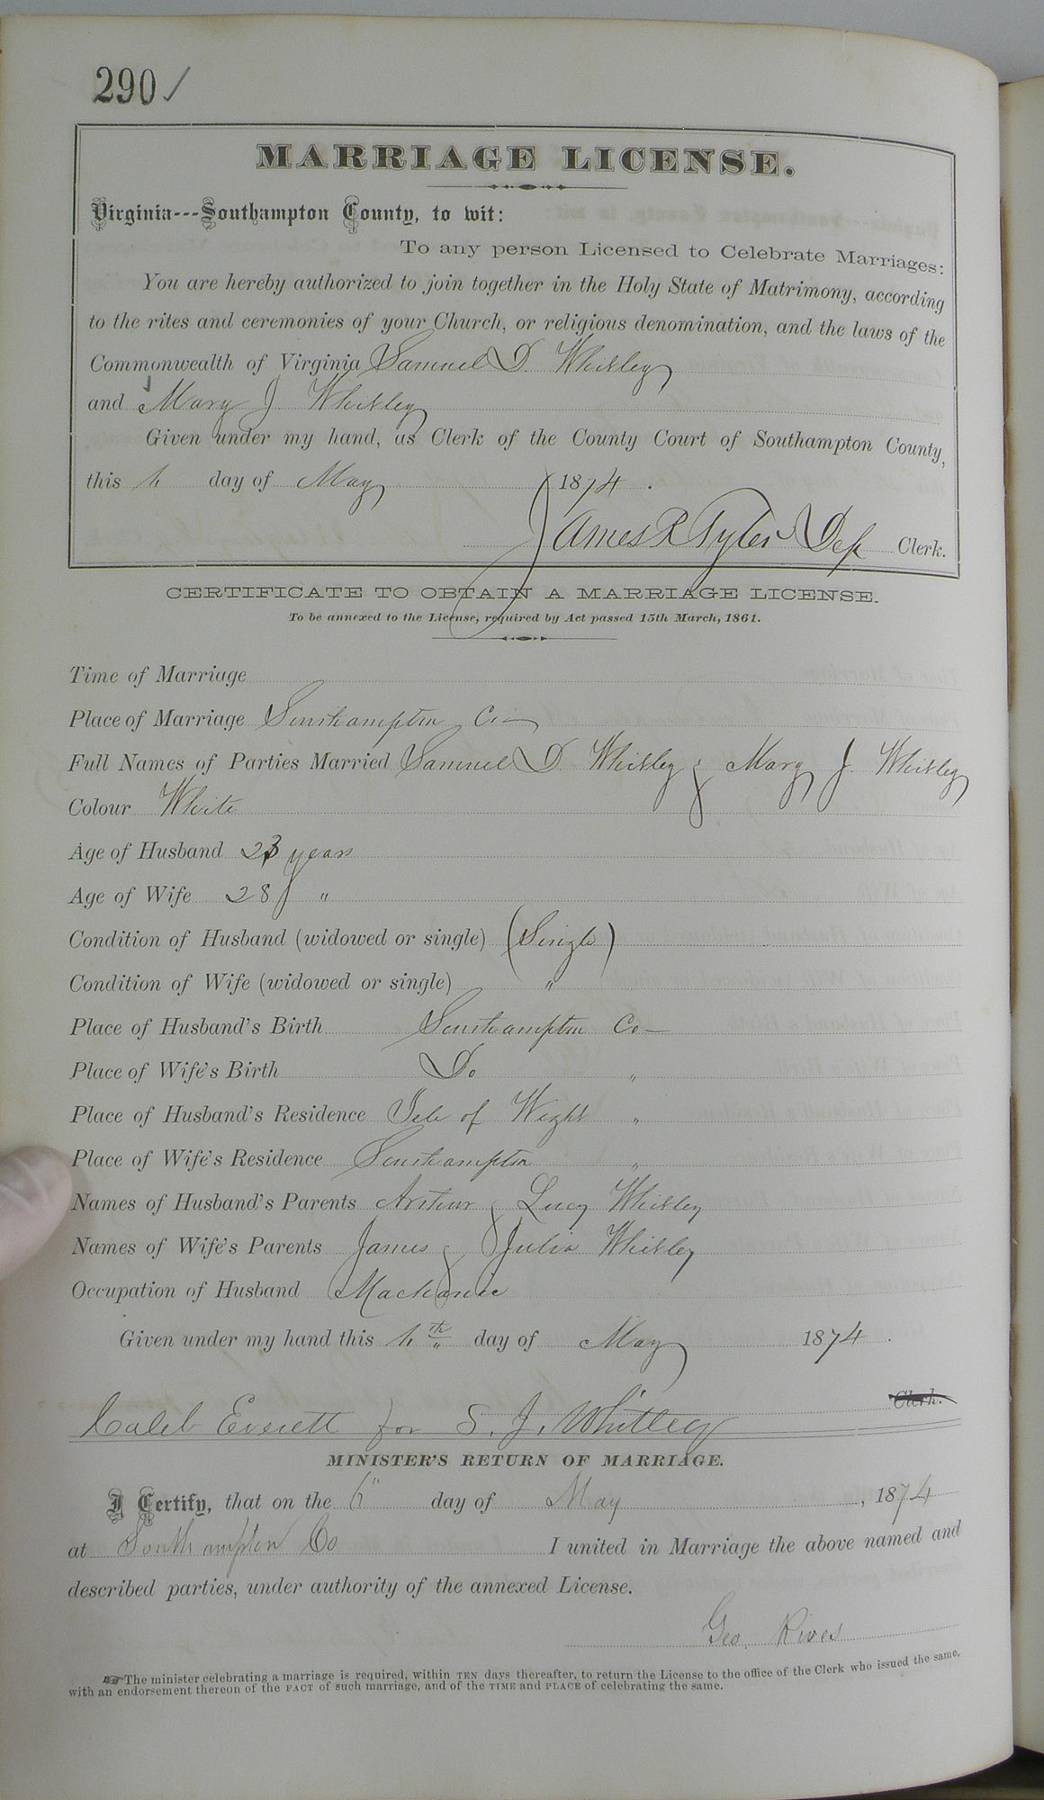 290 ✓
MARRIAGE LICENSE.
Virginia---Southampton County, to wit:
To any person Licensed to Celebrate Marriages:
You are hereby authorized to join together in the Holy State of Matrimony, according
to the rites and ceremonies of your Church, or religious denomination, and the laws of the
Commonwealth of Virginia Samuel D. Whitley
and Mary J Whitley
Given under my hand, as Clerk of the County Court of Southampton County,
this day of May 1874.
James R Tyler Dep Clerk.
CERTIFICATE TO OBTAIN A MARRIAGE LICENSE.
To be annexed to the License, required by Act passed 15th March, 1861.
Time of Marriage
Place of Marriage Southampton Co—
Full Names of Parties Married Samuel D. Whitley & Mary J. Whitley
Colour White
Age of Husband 23 years
Age of Wife 28 "
Condition of Husband (widowed or single) (Single)
Condition of Wife (widowed or single) "
Place of Husband's Birth Southampton Co—
Place of Wife's Birth Do "
Place of Husband's Residence Isle of Wight "
Place of Wife's Residence Southampton "
Names of Husband's Parents Arthur & Lucy Whitley
Names of Wife's Parents James & Julia Whitley
Occupation of Husband Mechanic
Given under my hand this 6th day of May 1874.
Clerk.
Caleb Everett for S. J. Whitley
MINISTER'S RETURN OF MARRIAGE.
I Certify, that on the 6" day of May, 1874
at Southampton Co I united in Marriage the above named and
described parties, under authority of the annexed License.
Geo. Rives
☞The minister celebrating a marriage is required, within TEN days thereafter, to return the License to the office of the Clerk who issued the same,
with an endorsement thereon of the FACT of such marriage, and of the TIME and PLACE of celebrating the same.